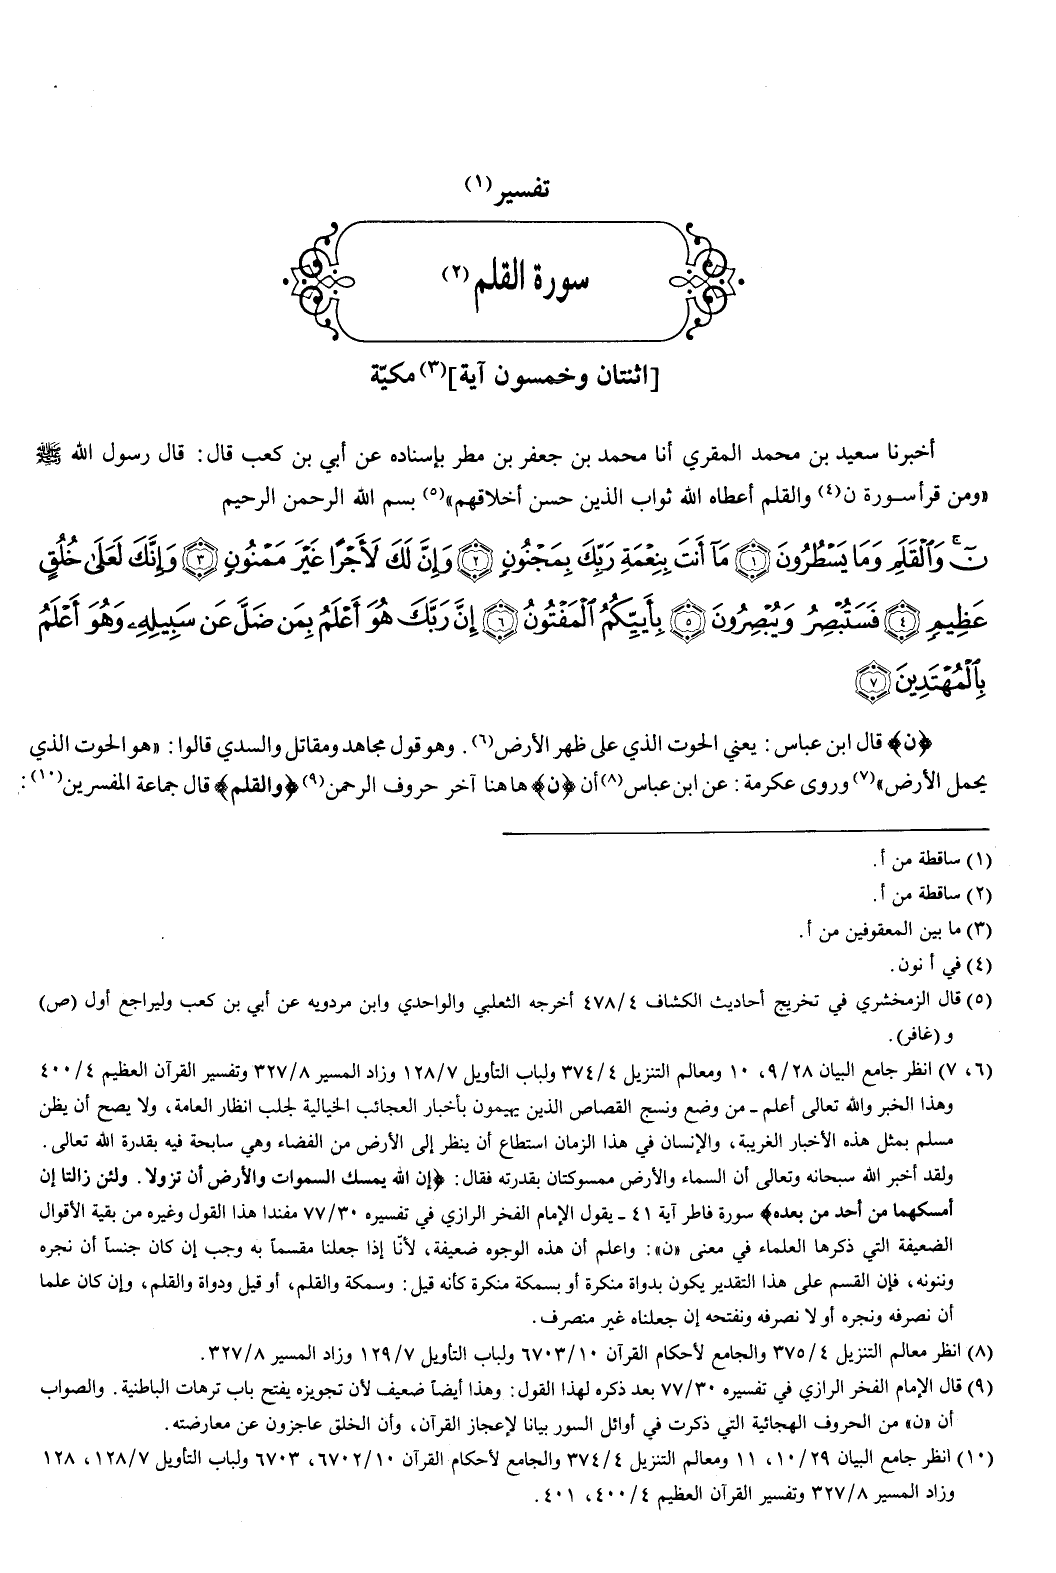 تفسير(١)
سورة القلم(٢)
[اثنتان وخمسون آية](٣) مكيّة
أخبرنا سعيد بن محمد المقري أنا محمد بن جعفر بن مطر بإسناده عن أبي بن كعب قال: قال رسول الله ﷺ
«ومن قرأ سورة ن(٤) والقلم أعطاه الله ثواب الذين حسن أخلاقهم»(٥) بسم الله الرحمن الرحيم
نٓ ۚ وَٱلْقَلَمِ وَمَا يَسْطُرُونَ ﴿١﴾ مَآ أَنتَ بِنِعْمَةِ رَبِّكَ بِمَجْنُونٍ ﴿٢﴾ وَإِنَّ لَكَ لَأَجْرًا غَيْرَ مَمْنُونٍ ﴿٣﴾ وَإِنَّكَ لَعَلَىٰ خُلُقٍ
عَظِيمٍ ﴿٤﴾ فَسَتُبْصِرُ وَيُبْصِرُونَ ﴿٥﴾ بِأَييِّكُمُ ٱلْمَفْتُونُ ﴿٦﴾ إِنَّ رَبَّكَ هُوَ أَعْلَمُ بِمَن ضَلَّ عَن سَبِيلِهِۦ وَهُوَ أَعْلَمُ
بِٱلْمُهْتَدِينَ ﴿٧﴾
﴿ن﴾ قال ابن عباس: يعني الحوت الذي على ظهر الأرض(٦). وهو قول مجاهد ومقاتل والسدي قالوا: «هو الحوت الذي
يحمل الأرض»(٧) وروى عكرمة: عن ابن عباس(٨) أن ﴿ن﴾ ها هنا آخر حروف الرحمن(٩) ﴿والقلم﴾ قال جماعة المفسرين(١٠):
(١) ساقطة من أ.
(٢) ساقطة من أ.
(٣) ما بين المعقوفين من أ.
(٤) في أ نون.
(٥) قال الزمخشري في تخريج أحاديث الكشاف ٤٧٨/٤ أخرجه الثعلبي والواحدي وابن مردويه عن أبي بن كعب وليراجع أول (ص)
و (غافر).
(٦، ٧) انظر جامع البيان ٩/٢٨، ١٠ ومعالم التنزيل ٣٧٤/٤ ولباب التأويل ١٢٨/٧ وزاد المسير ٣٢٧/٨ وتفسير القرآن العظيم ٤٠٠/٤
وهذا الخبر والله تعالى أعلم - من وضع ونسج القصاص الذين يهيمون بأخبار العجائب الخيالية لجلب انظار العامة، ولا يصح أن يظن
مسلم بمثل هذه الأخبار الغريبة، والإنسان في هذا الزمان استطاع أن ينظر إلى الأرض من الفضاء وهي سابحة فيه بقدرة الله تعالى.
ولقد أخبر الله سبحانه وتعالى أن السماء والأرض ممسوكتان بقدرته فقال: ﴿إن الله يمسك السموات والأرض أن تزولا. ولئن زالتا إن
أمسكهما من أحد من بعده﴾ سورة فاطر آية ٤١ - يقول الإمام الفخر الرازي في تفسيره ٧٧/٣٠ مفندا هذا القول وغيره من بقية الأقوال
الضعيفة التي ذكرها العلماء في معنى «ن»: واعلم أن هذه الوجوه ضعيفة، لأنّا إذا جعلنا مقسماً به وجب إن كان جنساً أن نجره
وننونه، فإن القسم على هذا التقدير يكون بدواة منكرة أو بسمكة منكرة كأنه قيل: وسمكة والقلم، أو قيل ودواة والقلم، وإن كان علما
أن نصرفه ونجره أو لا نصرفه ونفتحه إن جعلناه غير منصرف.
(٨) انظر معالم التنزيل ٣٧٥/٤ والجامع لأحكام القرآن ٦٧٠٣/١٠ ولباب التأويل ١٢٩/٧ وزاد المسير ٣٢٧/٨.
(٩) قال الإمام الفخر الرازي في تفسيره ٧٧/٣٠ بعد ذكره لهذا القول: وهذا أيضاً ضعيف لأن تجويزه يفتح باب ترهات الباطنية. والصواب
أن «ن» من الحروف الهجائية التي ذكرت في أوائل السور بيانا لإعجاز القرآن، وأن الخلق عاجزون عن معارضته.
(١٠) انظر جامع البيان ١٠/٢٩، ١١ ومعالم التنزيل ٣٧٤/٤ والجامع لأحكام القرآن ٦٧٠٢/١٠، ٦٧٠٣ ولباب التأويل ١٢٨/٧، ١٢٨
وزاد المسير ٣٢٧/٨ وتفسير القرآن العظيم ٤٠٠/٤، ٤٠١.